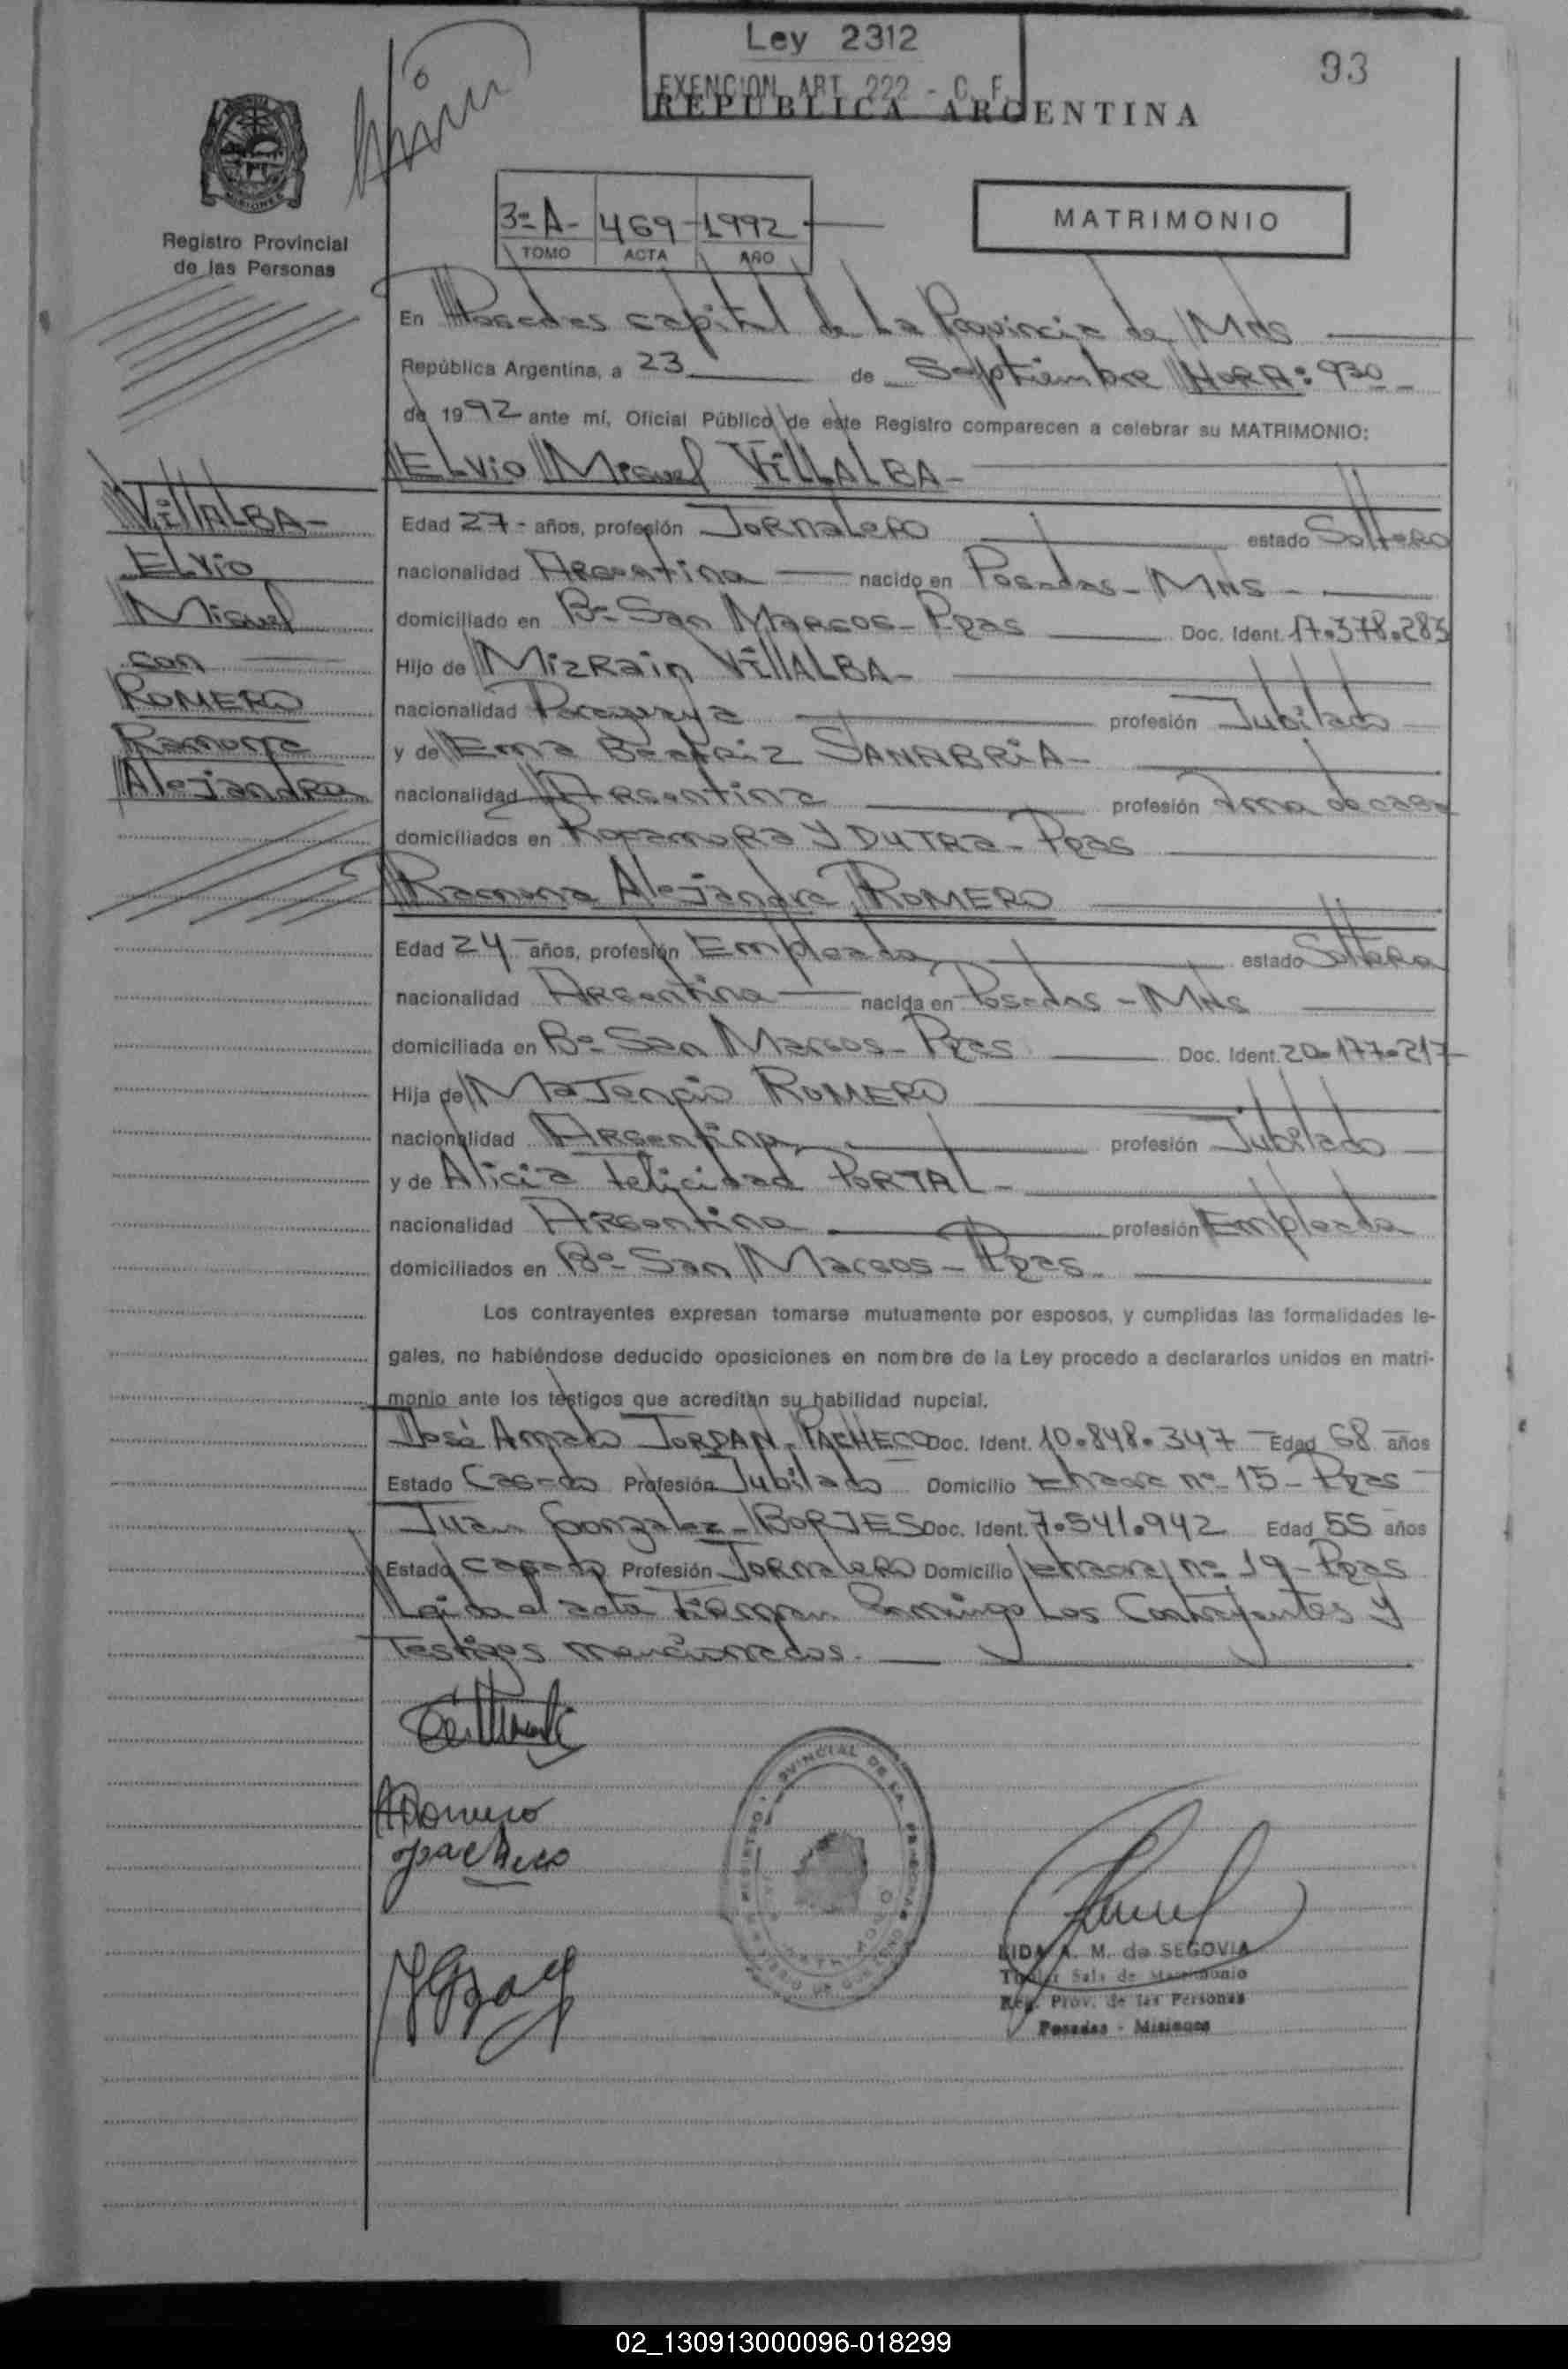 Ley 2312
EXENCION ART. 222 - C. F.
93
REPUBLICA ARGENTINA
MISIONES
Registro Provincial
de las Personas
3º A - 469 - 1992
TOMO ACTA AÑO
MATRIMONIO
En Posadas capital de La Provincia de Mns
República Argentina, a 23 de Septiembre HORA: 930
de 1992 ante mí, Oficial Público de este Registro comparecen a celebrar su MATRIMONIO:
ELVio Miguel ViLLALBA -
VillALBA -
ELVio
Miguel
con
ROMERO
Ramona
Alejandra
Edad 27 - años, profesión JORNALERO estado Soltero
nacionalidad Argentina nacido en Posadas - Mns -
domiciliado en Bº San Marcos - Pdas Doc. Ident. 17.378.283
Hijo de MizRain VillALBA -
nacionalidad Paraguaya profesión Jubilado
y de Ema Beatriz SANABRiA -
nacionalidad Argentina profesión Ama de casa
domiciliados en Rocamora Y DUTRA - Pdas
Ramona Alejandra ROMERO
Edad 24 años, profesión Empleada estado Soltera
nacionalidad Argentina nacida en Posadas - Mns
domiciliada en Bº San Marcos - Pdas Doc. Ident. 20.177.217
Hija de ROMERO
nacionalidad Argentina profesión Jubilado
y de Alicia Felicidad PORTAL -
nacionalidad Argentina profesión Empleada
domiciliados en Bº San Marcos - Pdas
Los contrayentes expresan tomarse mutuamente por esposos, y cumplidas las formalidades le-
gales, no habiéndose deducido oposiciones en nombre de la Ley procedo a declararlos unidos en matri-
monio ante los testigos que acreditan su habilidad nupcial.
José Amado JORDAN - PACHECO Doc. Ident. 10.848.347 Edad 68 años
Estado Casado Profesión Jubilado Domicilio chacra nº 15 - Pdas
Juan Gonzalez - BORJES Doc. Ident. 7.541.942 Edad 55 años
Estado casado Profesión JORNALERO Domicilio chacra nº 19 - Pdas
Leida el acta Firman Conmigo Los Contrayentes Y
Testigos mencionados.
ARomero
pacheco
LIDA A. M. de SEGOVIA
Titular Sala de Matrimonio
Reg. Prov. de las Personas
Posadas - Misiones
02_130913000096-018299